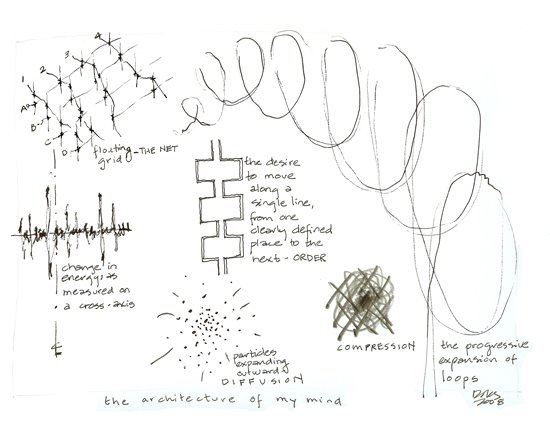 4
3
2
1
A
B
C
D
floating - THE NET
grid
the desire
to move
along a
single line,
from one
clearly defined
place to the
next - ORDER
change in
energy as
measured on
a cross-axis
particles
expanding
outward
DIFFUSION
COMPRESSION
the progressive
expansion of
loops
2008
the architecture of my mind